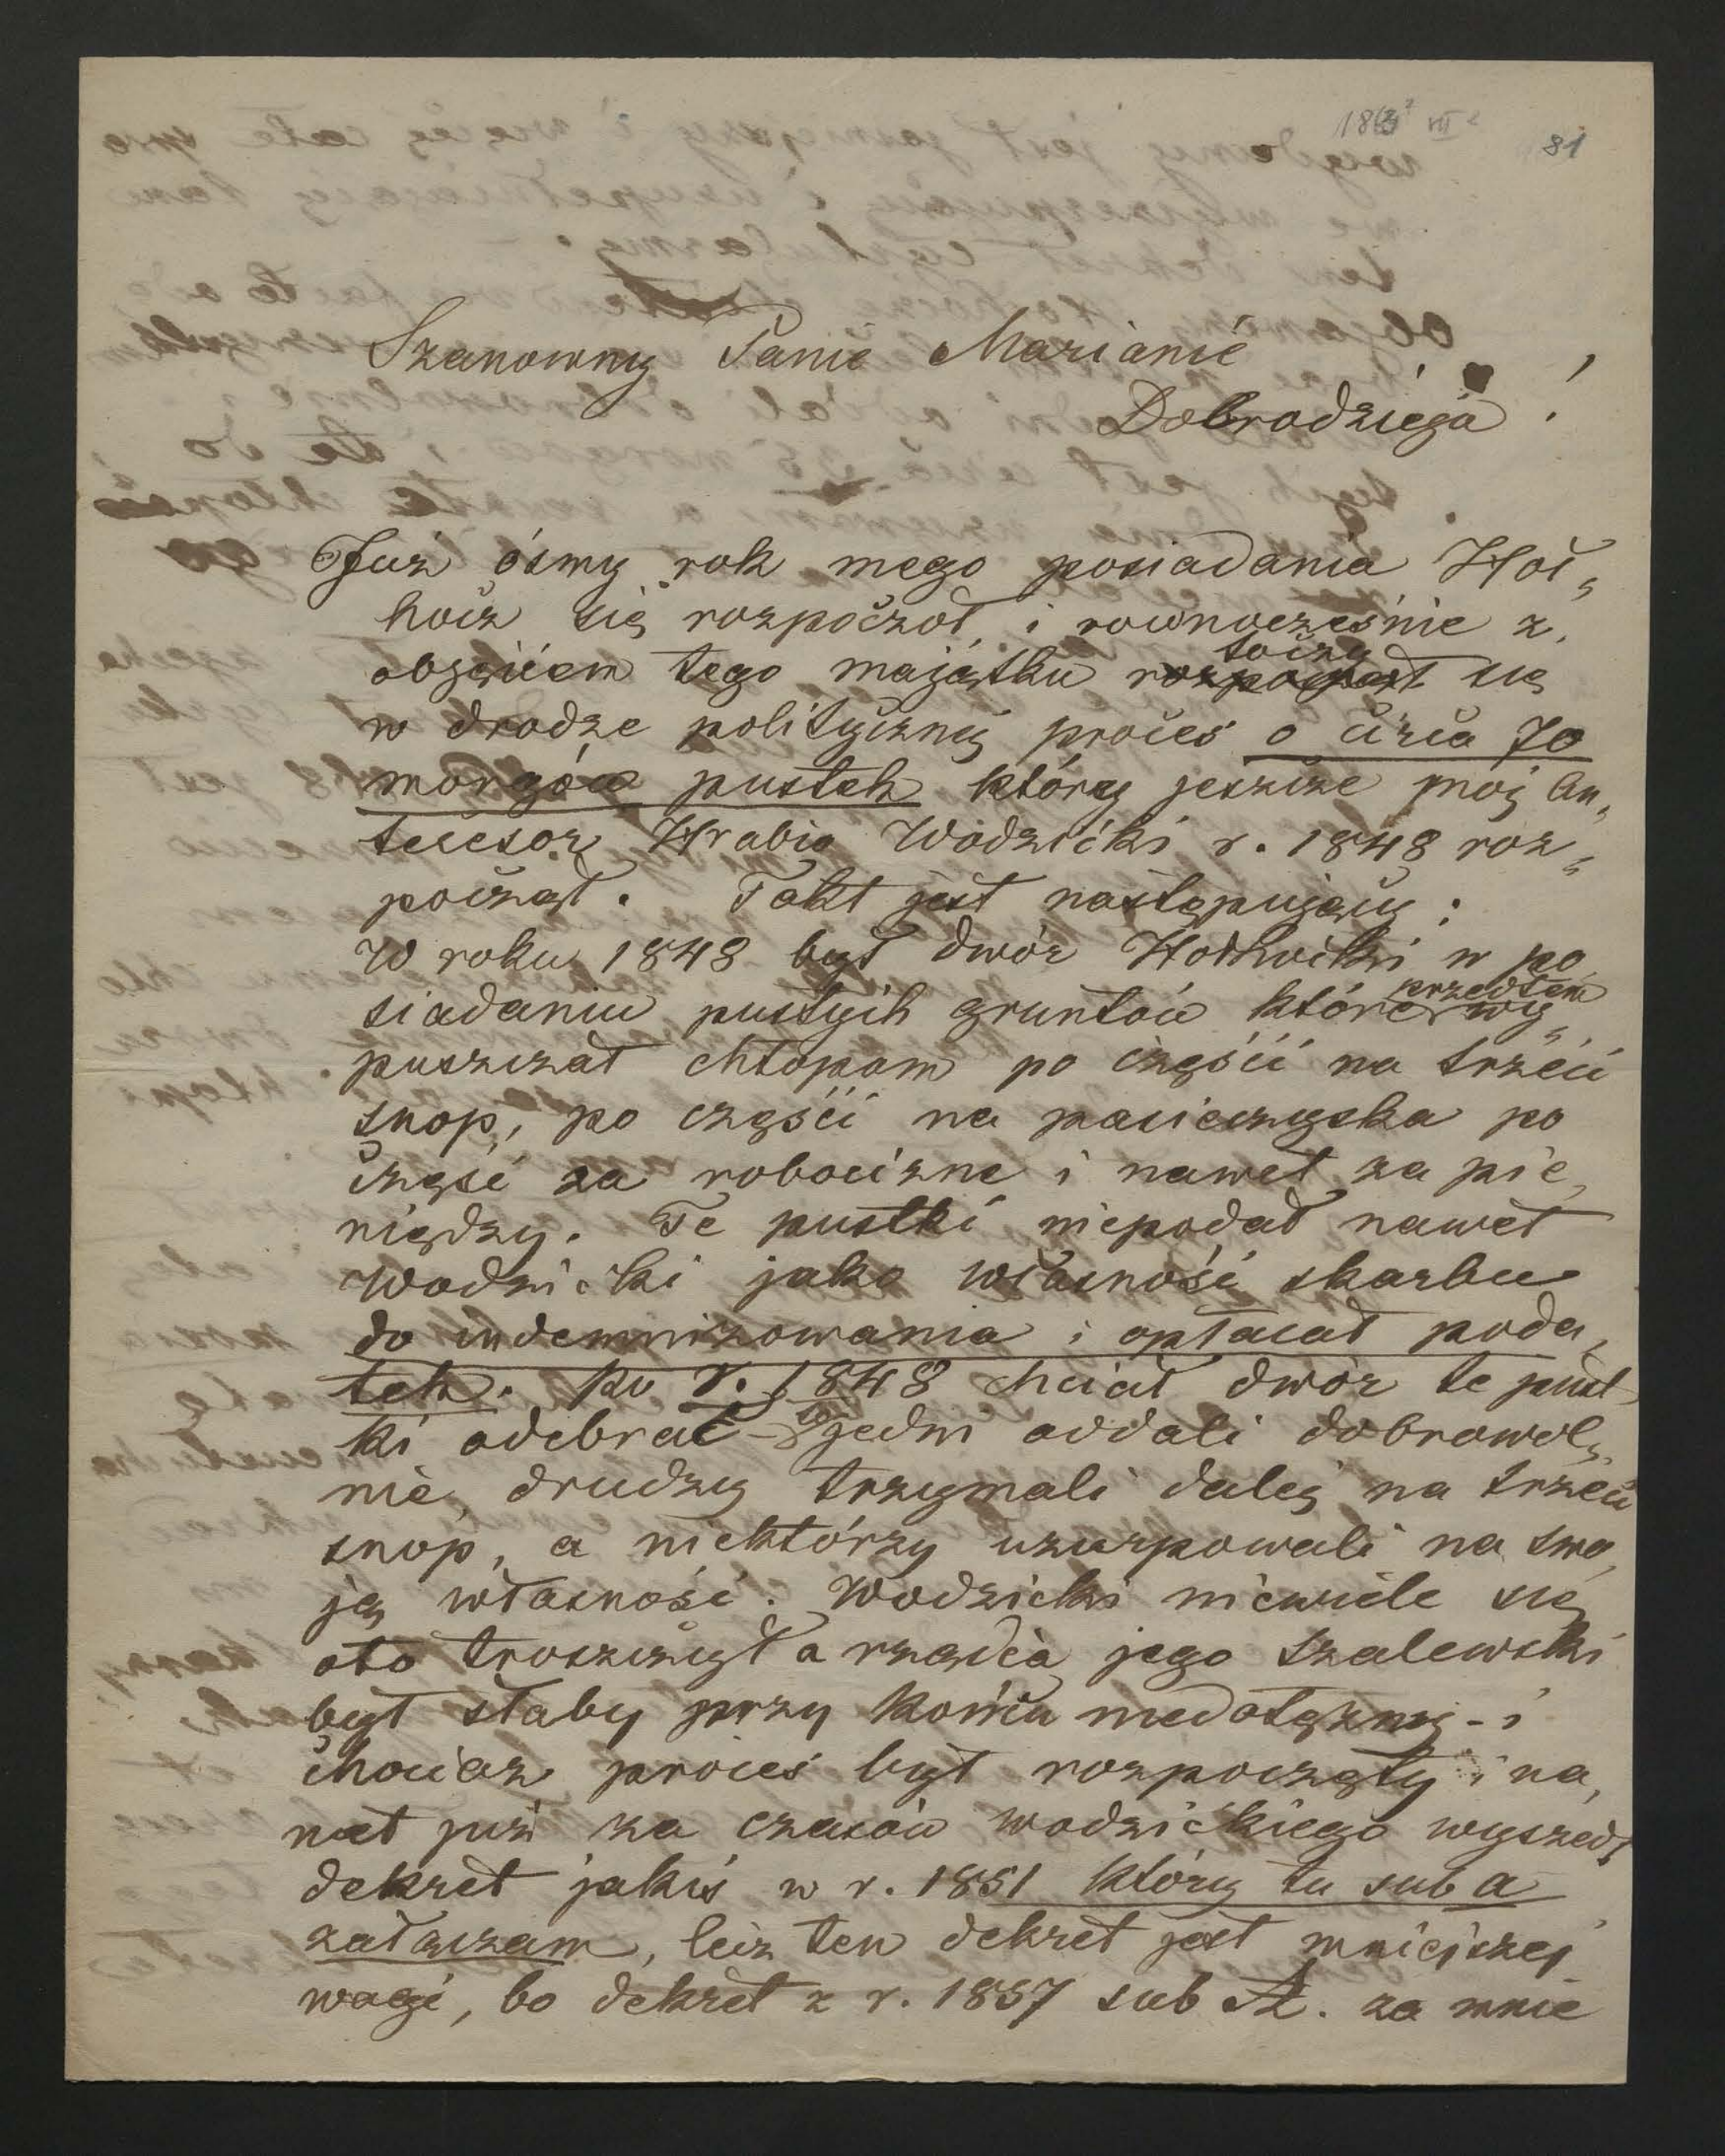 186 VIII
81
Szanowny Panie Marianie
Dobrodzieja !
Już ósmy rok mego posiadania Hoł„
hocz się rozpoczoł, i rownocześnie z
obzęciem tego majątku toczy się
w drodze polityczney proces o circa 70
morgów pustek który jeszcze mój An„
tecesor Hrabia Wodzicki r. 1848 roz„
począł. Fakt jest następujący:
W roku 1848 był dwór Hołhocki w po
siadaniu pustych gruntów które przedtem wy„
puszczał chłopom po części na trzeci
snop, po części na pasieczyska po
część za robociznę i nawet za pie„
niędzy. Te pustki niepodał nawet
Wodzicki jako własność skarbu
do indemnizowania i opłacał poda„
tek. Po r. 1848 chciał dwór te pust
ki odebrać – jedni oddali dobrowol„
nie, drudzy trzymali daley na trzeci
snop, a niektórzy uzurpowali na swo
ję własność. Wodzicki niewiele się
oto troszczył a rządca jego Szalewski
był słaby przy końcu niedołężny – i
chociaż proces był rozpoczęty i na„
wet już za czasów Wodzickiego wyszedł
dekret jakiś w r. 1851 który tu sub a
załączam, lecz ten dekret jest mniejszej
wagi, bo dekret z r. 1857 sub A. za mnie